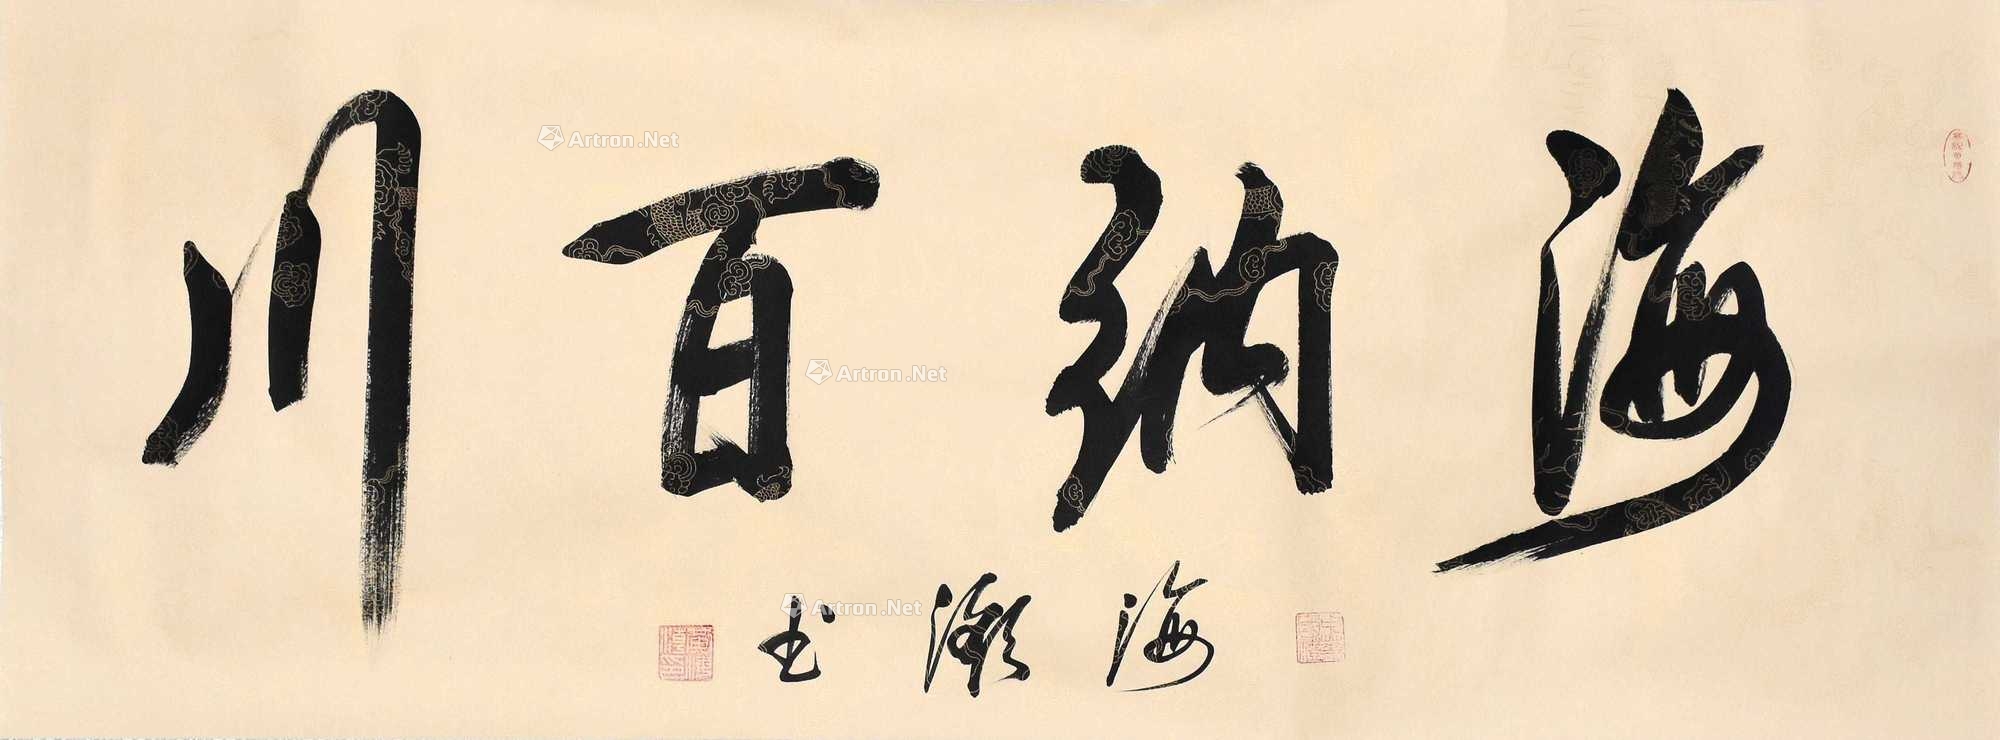 海納百川
海灝书
Artron.Net
Artron.Net
Artron.Net